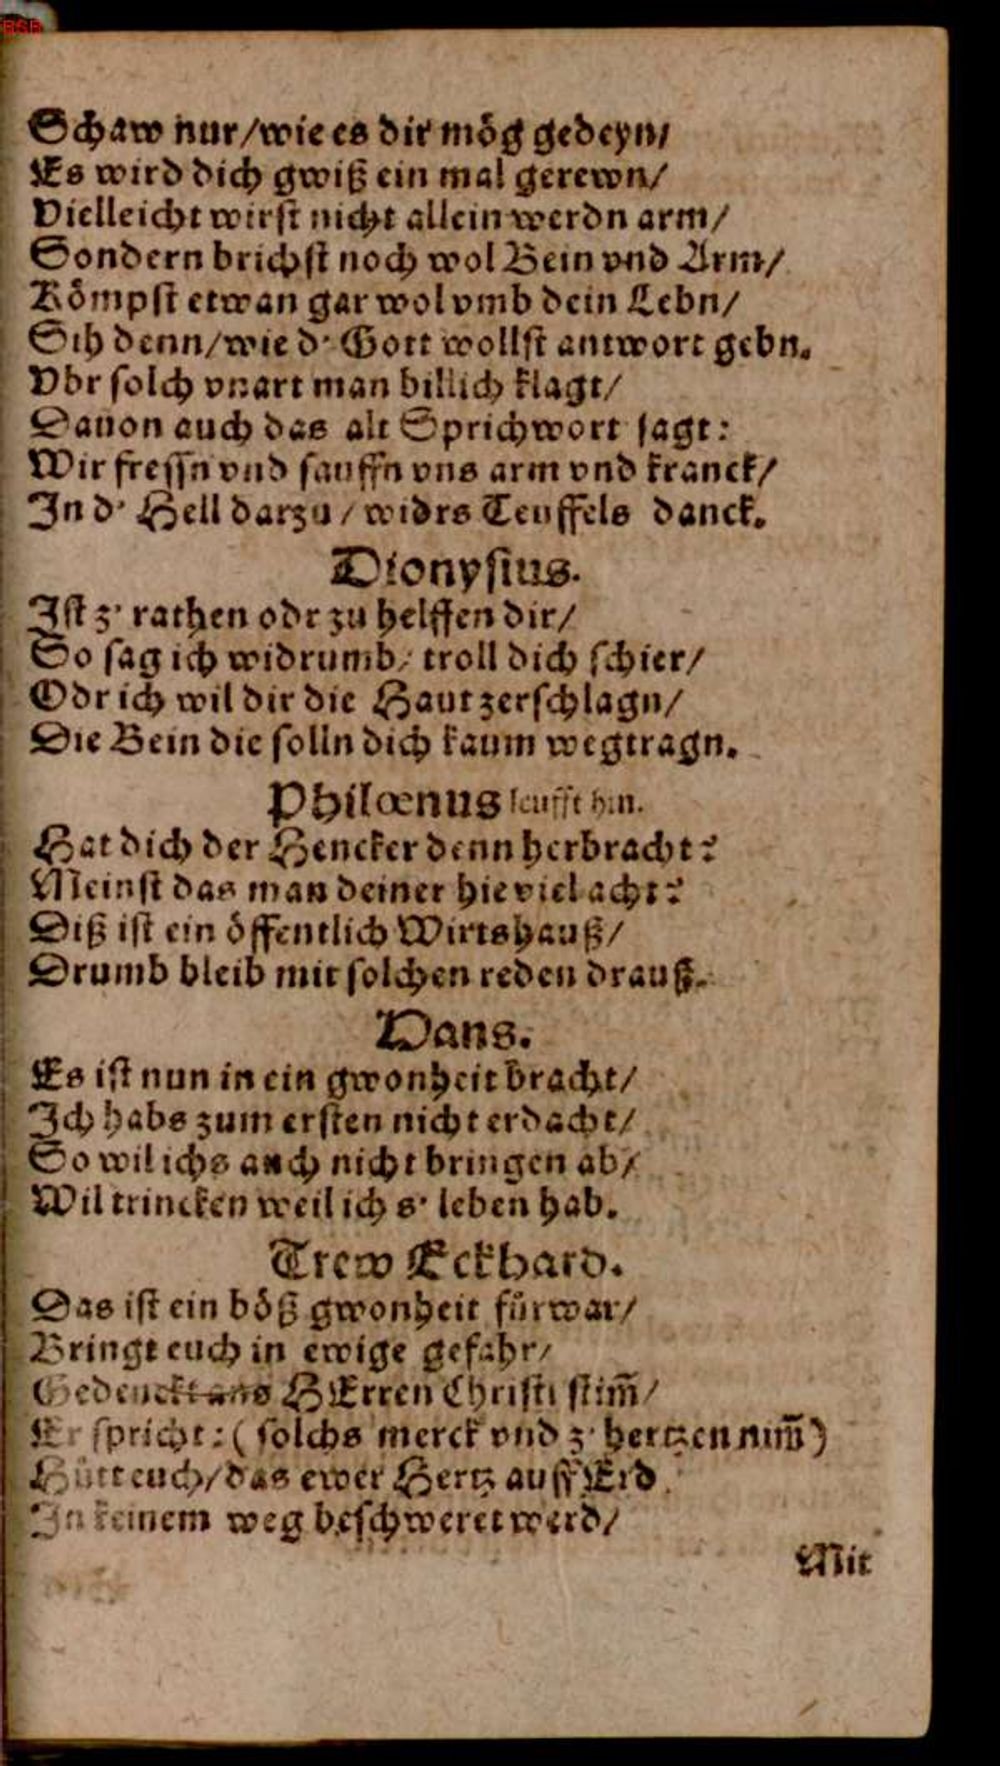 BSB
Schaw nur/wie es dir mög gedeyn/
Es wird dich gwiß ein mal gerewn/
Vielleicht wirst nicht allein werdn arm/
Sondern brichst noch wol Bein vnd Arm/
Kömpst etwan gar wol vmb dein Lebn/
Sih denn/wie d' Gott wollst antwort gebn.
Vbr solch vnart man billich klagt/
Dauon auch das alt Sprichwort sagt:
Wir fressn vnd sauffn vns arm vnd kranck/
In d' Hell darzu/widrs Teuffels danck.
Dionysius.
Ist z' rathen odr zu helffen dir/
So sag ich widrumb/ troll dich schier/
Odr ich wil dir die Haut zerschlagn/
Die Bein die solln dich kaum wegtragn.
Philœnus leufft hin.
Hat dich der Hencker denn herbracht?
Meinst das man deiner hie viel acht?
Diß ist ein öffentlich Wirtshauß/
Drumb bleib mit solchen reden drauß.
Hans.
Es ist nun in ein gwonheit bracht/
Ich habs zum ersten nicht erdacht/
So wil ichs auch nicht bringen ab/
Wil trincken weil ich s' leben hab.
Trew Eckhard.
Das ist ein böß gwonheit fürwar/
Bringt euch in ewige gefahr/
Gedenckt ans HErren Christi stim̃/
Er spricht: (solchs merck vnd z' hertzen nim̃)
Hütt euch/das ewer Hertz auff Erd
In keinem weg beschweret werd/
Mit